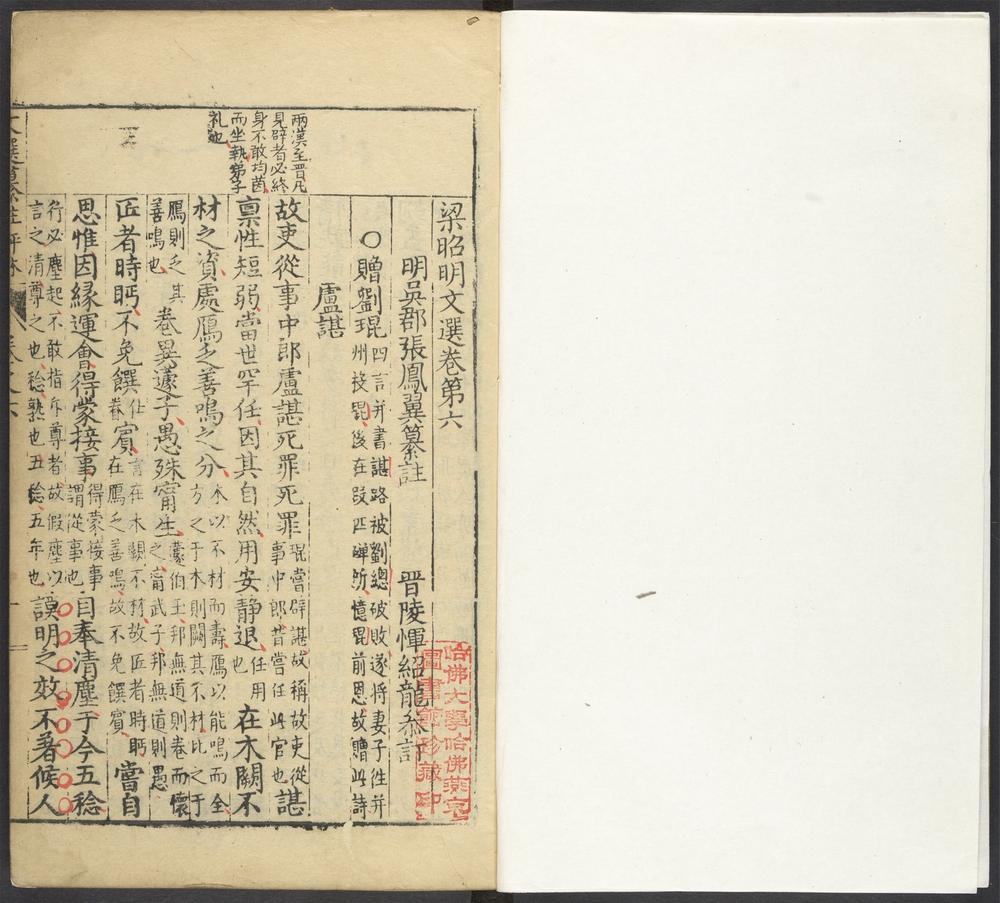 梁昭明文選卷第六
明吳郡張鳳翼纂註 晉陵惲紹龍叅訂
哈佛大學哈佛燕京
圖書館珍藏印
○贈劉琨 四言并書 諶路被劉總破敗遂將妻子徃并
州投琨後在段匹磾所憶琨前恩故贈此詩
盧諶
兩漢至晉凡
見辟者必終
身不敢均茵
而坐執弟子
礼也
故吏從事中郎盧諶死罪死罪 琨嘗辟諶故稱故吏從
事中郎昔嘗任此官也 諶
稟性短弱當世罕任因其自然用安靜退 任用
也 在木闕不
材之資處鴈乏善鳴之分 木以不材而壽鴈以能鳴而全
方之于木則闕其不材比之于
鴈則乏其
善鳴也 卷異蘧子愚殊甯生 蘧伯玉邦無道則卷而懷
之甯武子邦無道則愚
匠者時眄不免饌賓 仕
眷 言在木闕不材故匠者時眄
在鴈乏善鳴故不免饌賓 嘗自
思惟因緣運會得蒙接事 得蒙接事
謂從事也 自奉清塵于今五稔
行必塵起不敢指斥尊者故假塵以
言之清尊之也稔熟也五稔五年也 謨明之效不著候人